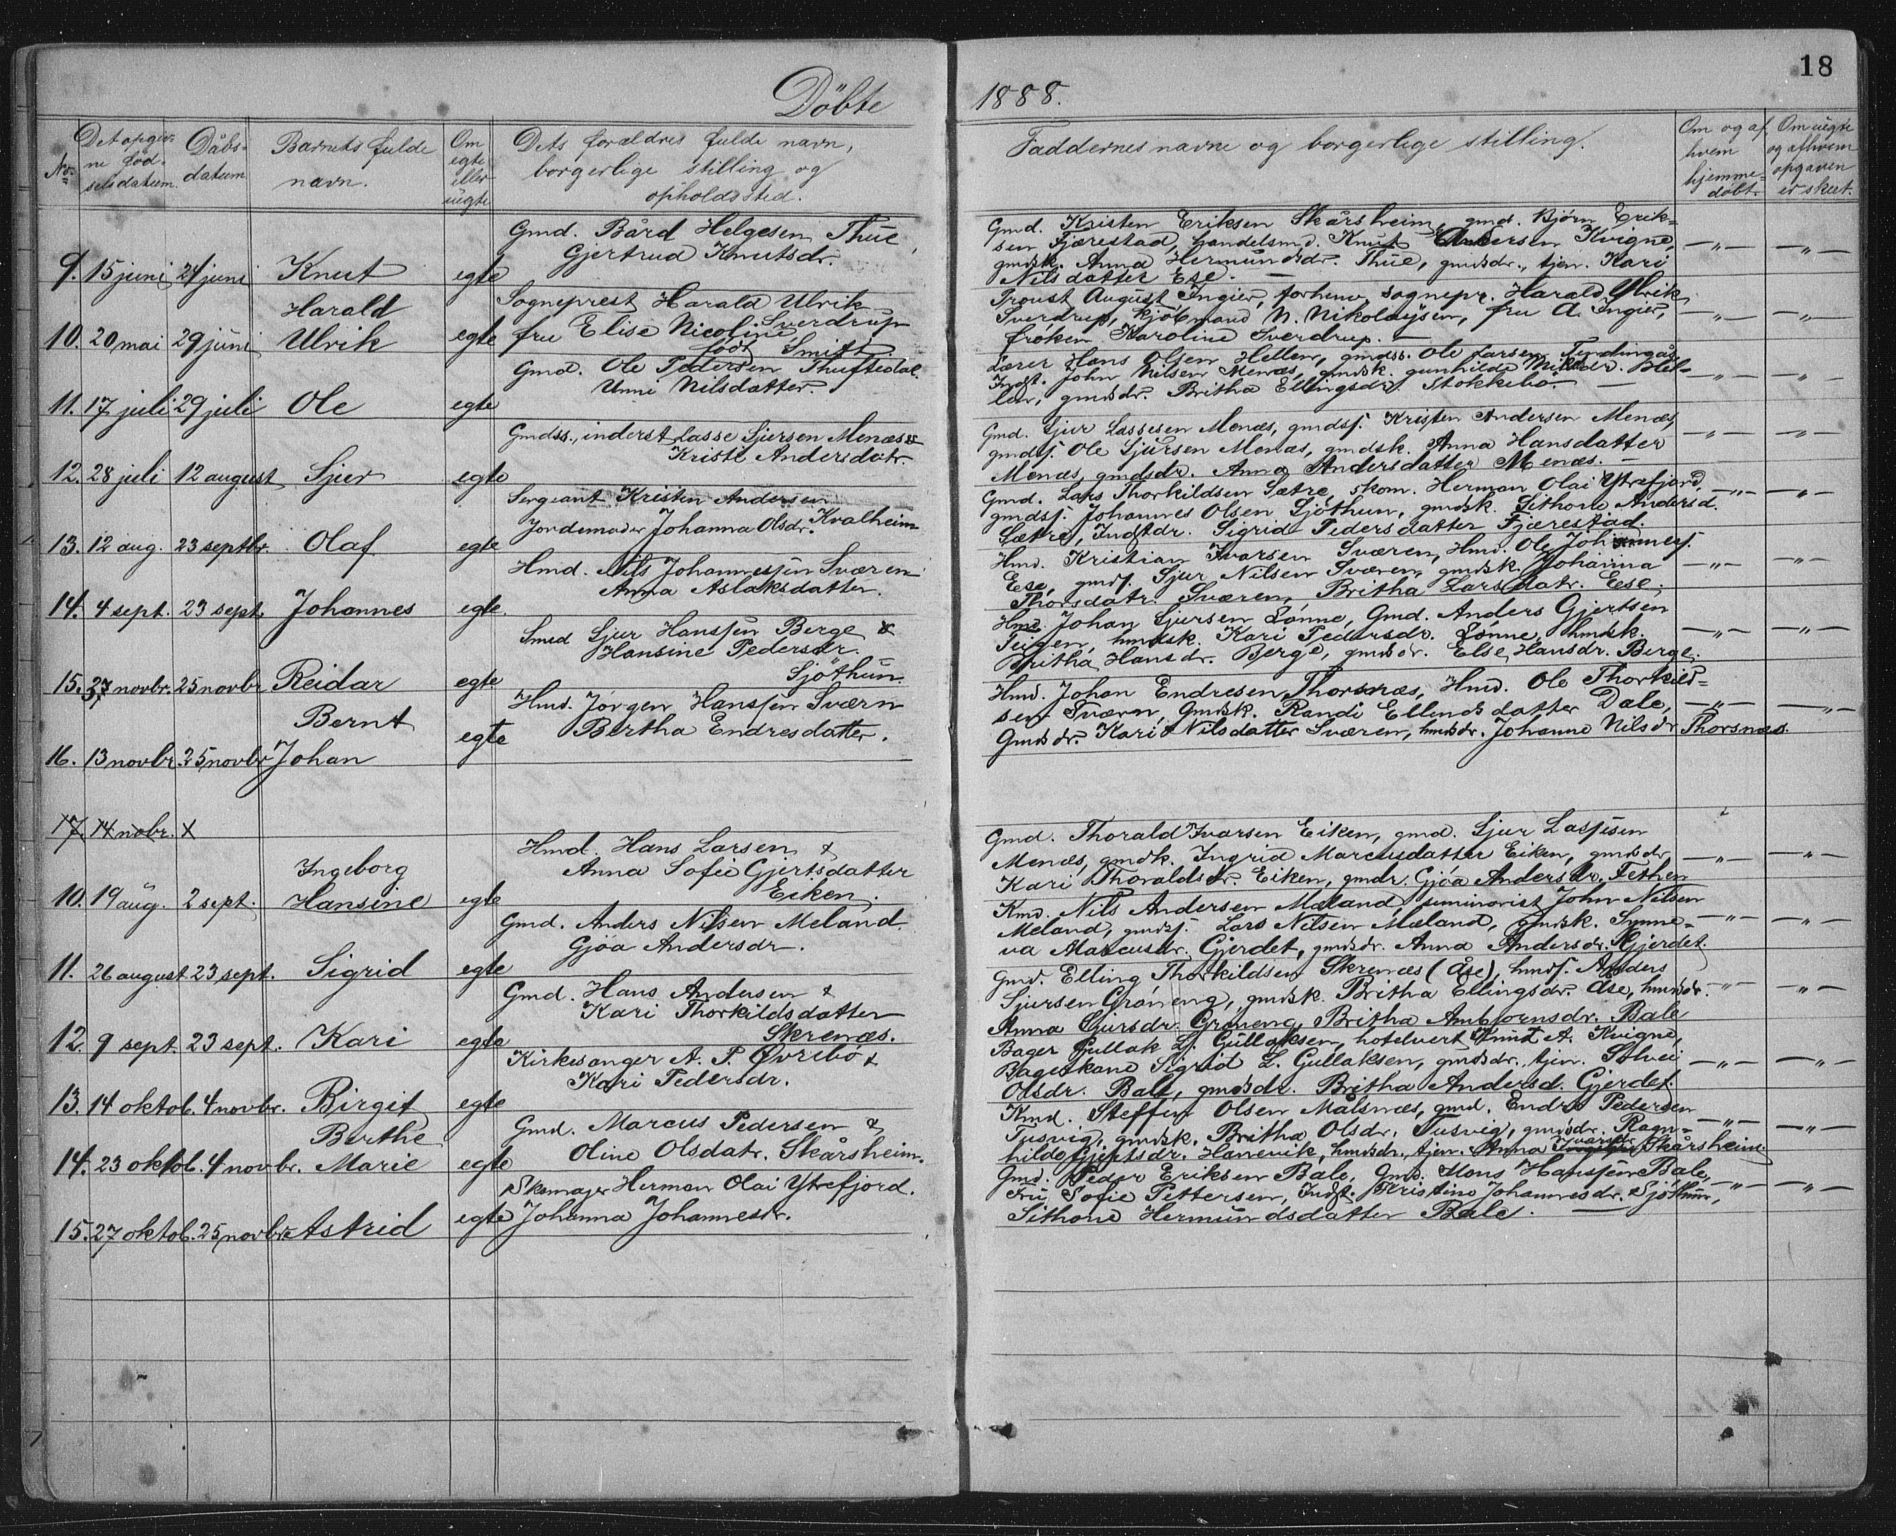 18
Döbte 1888.
No. Det opgiv-
ne föd-
selsdatum.
Dåbs-
datum
Barnets fulde
navn.
Om
egte
eller
uegte
Dets forældres fulde navn,
borgerlige stilling og
opholdssted.
Faddernes navne og borgerlige stilling.
Om og af
hvem
hjemme-
döbt.
Om uegte
og af hvem
opgaven
er skeet.
9. 15 juni 24 juni Knut egte
Gmd. Bård Helgesen Thue,
Gjertrud Knutsdr.
Gmd. Kristen Eriksen Skårsheim, gmd. Björn Erik-
sen Fjærestad, handelsmd. Knut Andersen Kvigne,
gmdsk. Anna Hermundsdr. Thue, gmdsdr., tjen. Kari
Nilsdatter Ese. —
10. 20 mai 29 juni Harald
Ulrik egte
Sogneprest Harald Ulrik
Sverdrup
fru Elise Nicoline
född Smith.
Provst August Ingier, forhenv. sognepr. Harald Ulrik
Sverdrup, kjöbmand N. Nikolaysen, fru A. Ingier,
fröken Karoline Sverdrup. —
11. 17 juli 29 juli Ole egte
Gmd. Ole Pedersen Thuftedal
Unni Nilsdatter.
Lærer Hans Olsen Hellen, gmdss. Ole Larsen
Indst. John Nilsen Menæs, gmdsk. Gunhilde Nilsdr. Hel-
len, gmdsdr. Britha Ellingsdr. Stokkebö. —
12. 28 juli 12 august Sjur egte
Gmdss., inderst Lasse Sjursen Menæs &
Kristi Andersdatr.
Gmd. Sjur Lassesen Menæs, gmdsf. Kristen Andersen Menæs,
gmdsf. Ole Sjursen Menæs, gmdsk. Anna Hansdatter
Menæs, gmdsdr. Anna Andersdatter Menæs. —
13. 12 aug. 23 septbr. Olaf egte
Sergeant Kristen Andersen
Jordemoder Johanna Olsdr. Kvalheim
Gmd. Lars Thorkildsen Sætre, skom. Herman Olai Ytrefjord,
gmdsf. Johannes Olsen Sjöthun, gmdsk. Sithone Andersd.
Sætre, Indstdr. Sigrid Pedersdatter Fjærestad.
14. 4 sept. 23 sept. Johannes egte.
Hmd. Nils Johannessen Sværen
Anna Aslaksdatter.
Hmd. Kristian Ivarsen Sværen, Hmd. Ole Johannesf.
Ese, gmdsf. Sjur Nilsen Sværen, gmdsk. Johanna
Thorsdatr. Sværen, Britha Larsdatr. Eese.
15. 27 novbr. 25 novbr. Reidar egte
Smed Sjur Hanssen Berge &
Hansine Pedersdr.
Sjöthun.
Hmd. Johan Sjursen Lönne, Gmd. Anders Gjertsen
Teigen, hmdsk. Kari Pedersdr. Lönne, hmdsk.
Britha Hansdr. Berge, gmdsdr. Else Hansdr. Berge.
16. 13 novbr. 25 novbr. Bernt
Johan egte
Hmd. Jörgen Hanssen Sværn
Bertha Endresdatter.
Hmd. Johan Endresen Thorsnæs, Hmd. Ole Thorkild-
sen Sværn, Gmdsk. Randi Ellendsdatter Dale,
Gmdsdr. Kari Nilsdatter Sværen, hmdsdr. Johanne Nilsdr. Thorsnæs.
17. 14 nobr. x
10. 19 aug. 2 sept. Ingeborg
Hansine egte
Hmd. Hans Larsen &
Anna Sofie Gjertsdatter
Eiken.
Gmd. Thorald Ivarsen Eiken, gmd. Sjur Lassesen
Menæs, gmdk. Ingrid Marcusdatter Eiken, gmdsdr
Kari Thoraldsdr. Eiken, gmdr. Gjöa Andersdr. Fethen
11. 26 august 23 sept. Sigrid egte
Gmd. Anders Nilsen Meland.
Gjöa Andersdr.
Kmd. Nils Andersen Mæland, seminarist John Nilsen
Meland, gmdsf. Lars Nilsen Mæland, gmdsk. Synne-
va Marcusdr. Gjerdet, gmdsdr. Anna Andersdr. Gjerdet.
12. 9 sept. 23 sept. Kari egte
Gmd. Hans Andersen &
Kari Thorkildsdatter
Skrenæs.
Gmd. Elling Thorkildsen Skrenæs (Åse), hmdsf. Anders
Sjursen Gröneng, gmdsk. Britha Ellingsdr. Åse, hmdsdr.
Anna Sjursdr. Gröneng, Britha Ambjörnsdr. Bale
13. 14 oktob. 4 novbr. Birgit egte
Kirkesanger A. P. Övrebö &
Kari Pedersdr.
Bager Gullak Lj. Gullaksen, hotelvert Knut A. Kvigne,
Bagerkone Sigrid L. Gullaksen, gmdsdr., tjen. Solvei
Olsdr. Bale, gmdsdr. Britha Andersd. Gjerdet.
14. 23 oktob. 4 novbr. Berthe
Marie egte
Gmd. Marcus Pedersen &
Oline Olsdatr. Skårsheim.
Kmd. Steffen Olsen Målsnæs, gmd. Endre Pedersen
Tusvig, gmdsk. Britha Olsdr. Tusvig, gmdsdr. Ragn-
hilde Gjertsdr. Hanevik, hmdsdr., tjen. Anna Ivarsdr. Skårsheim.
15. 27 oktob. 25 novbr. Astrid egte
Skomager Herman Olai Ytrefjord.
Johanna Johannesdr.
Gmd. Peder Eriksen Bale, Gmd. Mons Hanssen Bale,
Fru Sofie Pettersen, Indst. Kristine Johannesdr. Sjöthun,
Sithone Hermundsdatter Bale. —